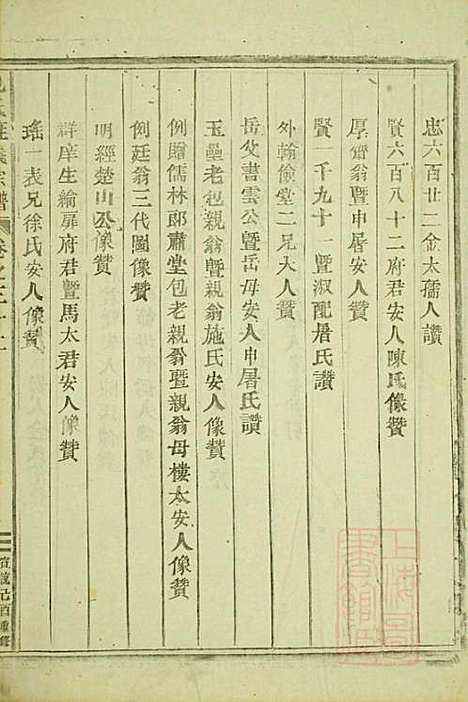 忠六百廿二金太孺人讚
賢六百八十二府君安人陳氏像贊
厚齋翁暨申屠安人贊
賢一千九十一暨淑配屠氏讚
外翰儉堂二兄大人贊
岳父書雲公暨岳母安人申屠氏讚
玉壘老包親翁暨親翁施氏安人像贊
例贈儒林郎肅堂包老親翁暨親翁母樓太安人像贊
例廷翁三代圖像贊
明經楚山公像贊
群庠生綸扉府君暨馬太君安人像贊
瑤一表兄徐氏安人像贊
宗譜 卷之二十二
宣統己酉重修
上海圖書館藏